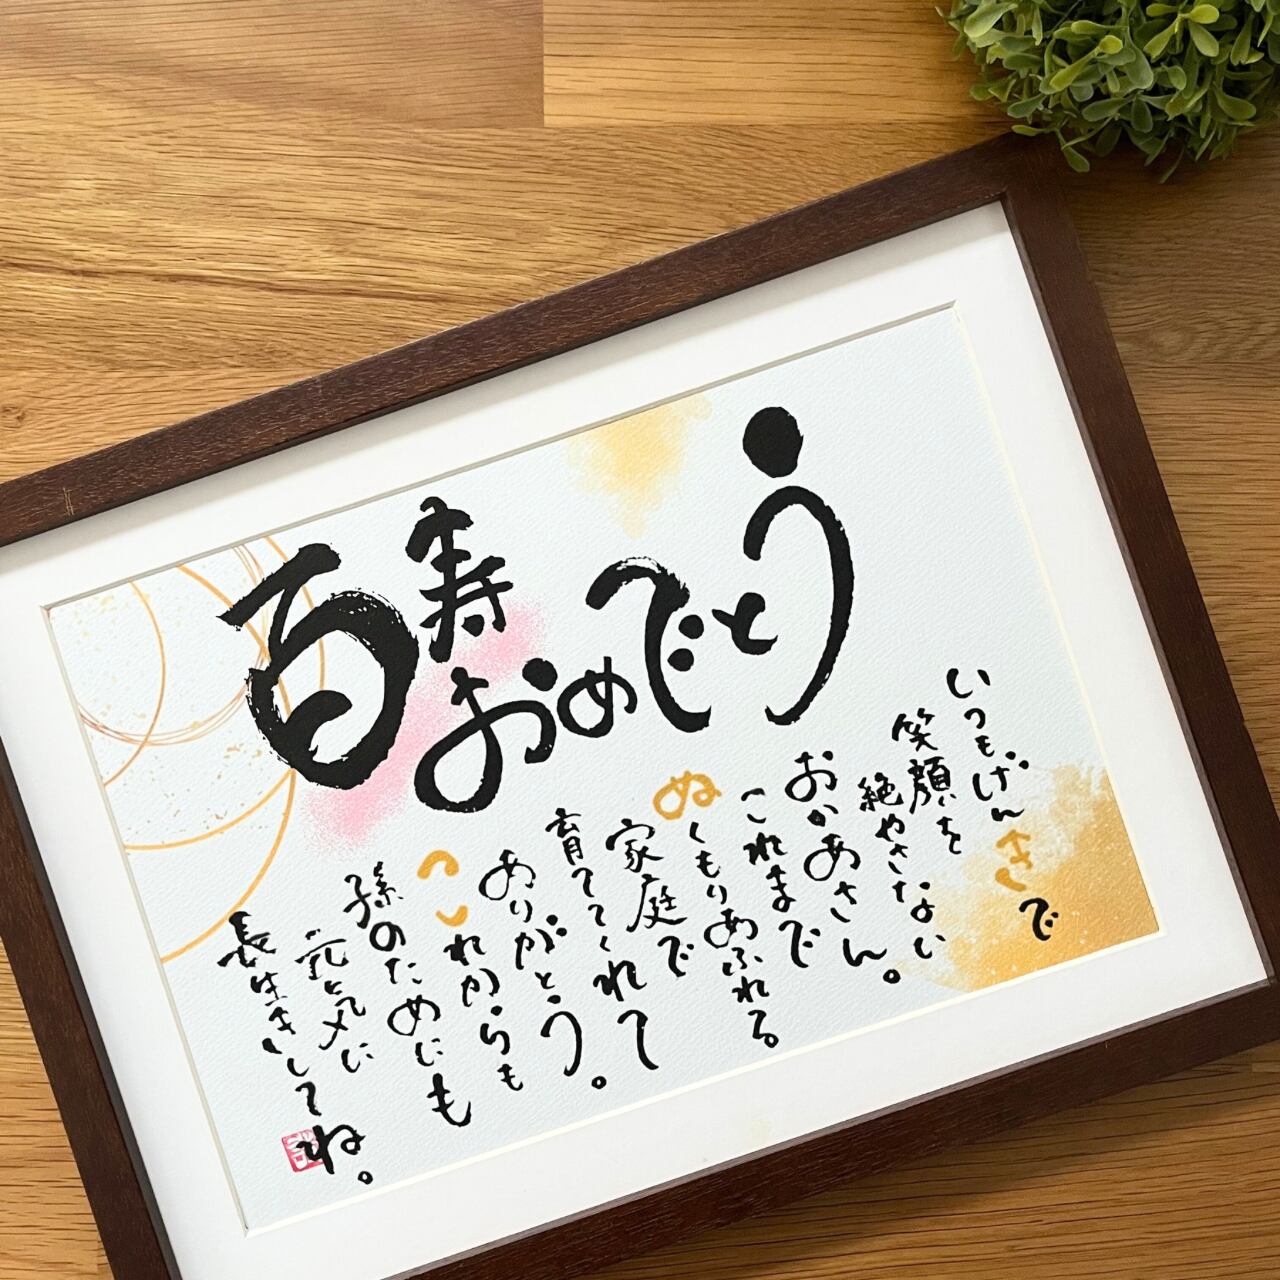 百寿おめでとう
いつもげんきで
笑顔を
絶やさない
おかあさん。
これまで
ぬくもりあふれる
家庭で
育ててくれて
ありがとう。
これからも
孫のためにも
元気に
長生きしてね。